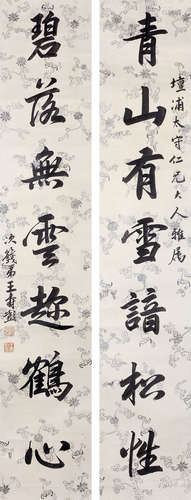 壇浦太守仁兄大人雅屬
青山有雪諳松性
碧落無雲趂鶴心
次籛弟王壽彭